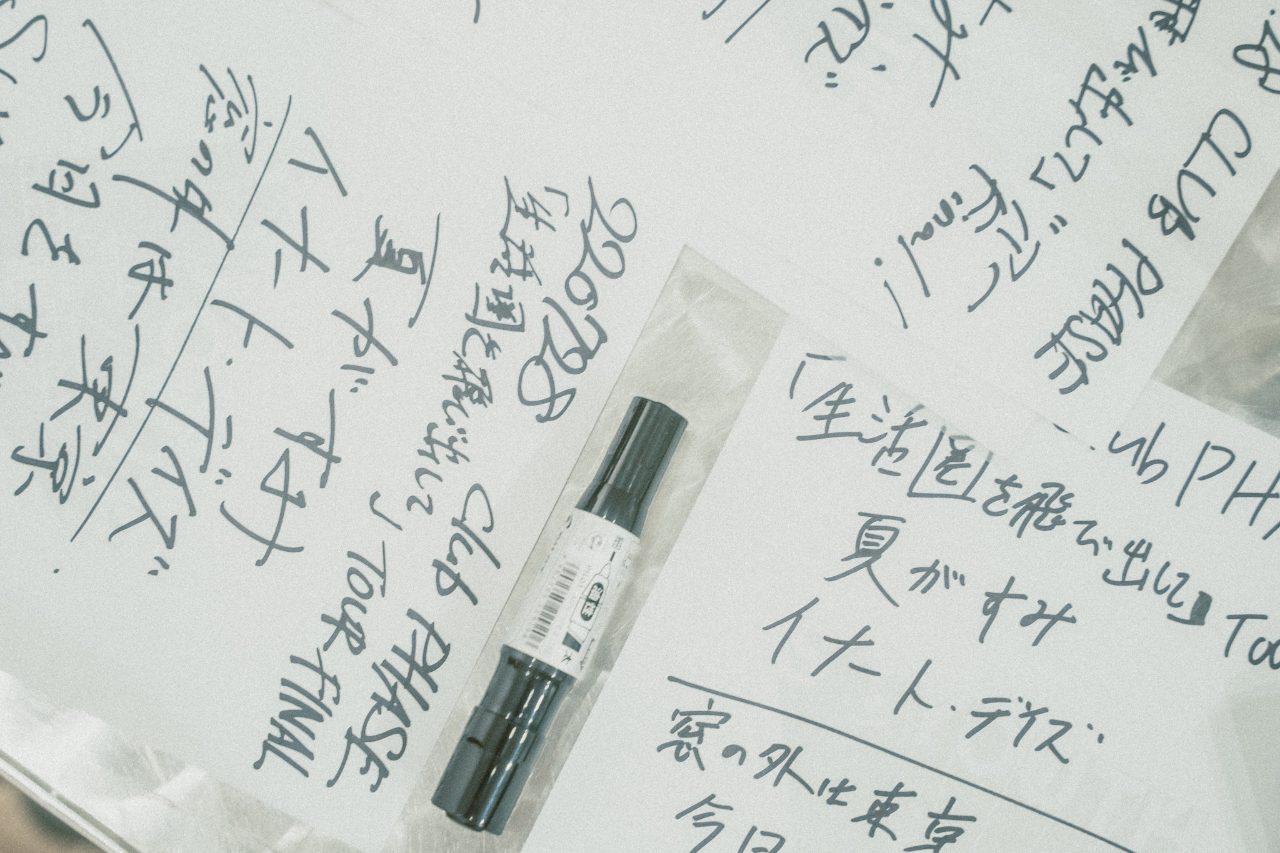 220728
Club PHASE
「生活圏を飛び出して」
TOUR FINAL
夏がすみ
イナート・デイズ
窓の外は東京
今日を
CLUB PHASE
飛び出して」
Final
イズ
ub PH
「生活圏を飛び出して」
夏がすみ
イナート・デイズ
窓の外は東京
今日